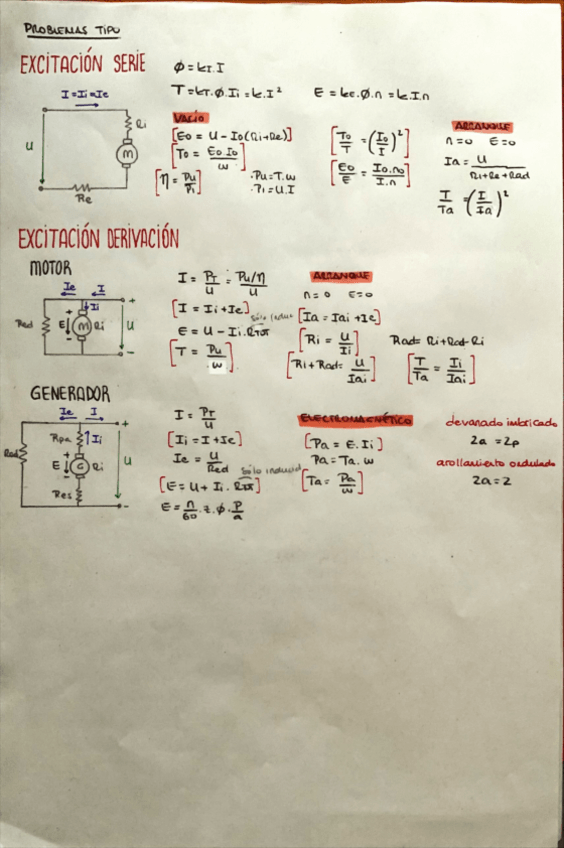 PROBLEMAS TIPO
EXCITACIÓN SERIE
Φ = kT.I
T = kT.Φ.Ii = k.I²
E = kE.Φ.n = k.I.n
I = Ii = Ie
U
Ri
M
Re
VACIO
[E0 = U - I0(Ri+Re)]
[T0 = E0.I0/w]
[η = Pu/Pi]
·Pu = T.w
·Pi = U.I
[T0/T = (I0/I)²]
[E0/E = I0.n0/I.n]
ARRANQUE
n=0 E=0
Ia = U/Ri+Re+Rad
T/Ta = (I/Ia)²
EXCITACIÓN DERIVACIÓN
MOTOR
Ie I
Ii
+
Red
E
+
-
M
Ri
U
-
I = PT/U = Pu/η/U
[I = Ii+Ie]
sólo induc
E = U - Ii.RTOT
[T = Pu/w]
ARRANQUE
n=0 E=0
[Ia = Iai + Ie]
[Ri = U/Ii]
Rad = Ri+Rad-Ri
[Ri+Rad = U/Iai]
[T/Ta = Ii/Iai]
GENERADOR
Ie I
+
Rpa
Ii
Red
E
+
-
G
Ri
U
Res
-
I = PT/U
[Ii = I+Ie]
Ie = U/Red
sólo inducid
[E = U + Ii.RTOT]
E = n/60.z.Φ.P/a
ELECTROMAGNÉTICO
[Pa = E.Ii]
Pa = Ta.w
[Ta = Pa/w]
devanado imbricado
2a = 2p
arollamiento ondulado
2a = 2